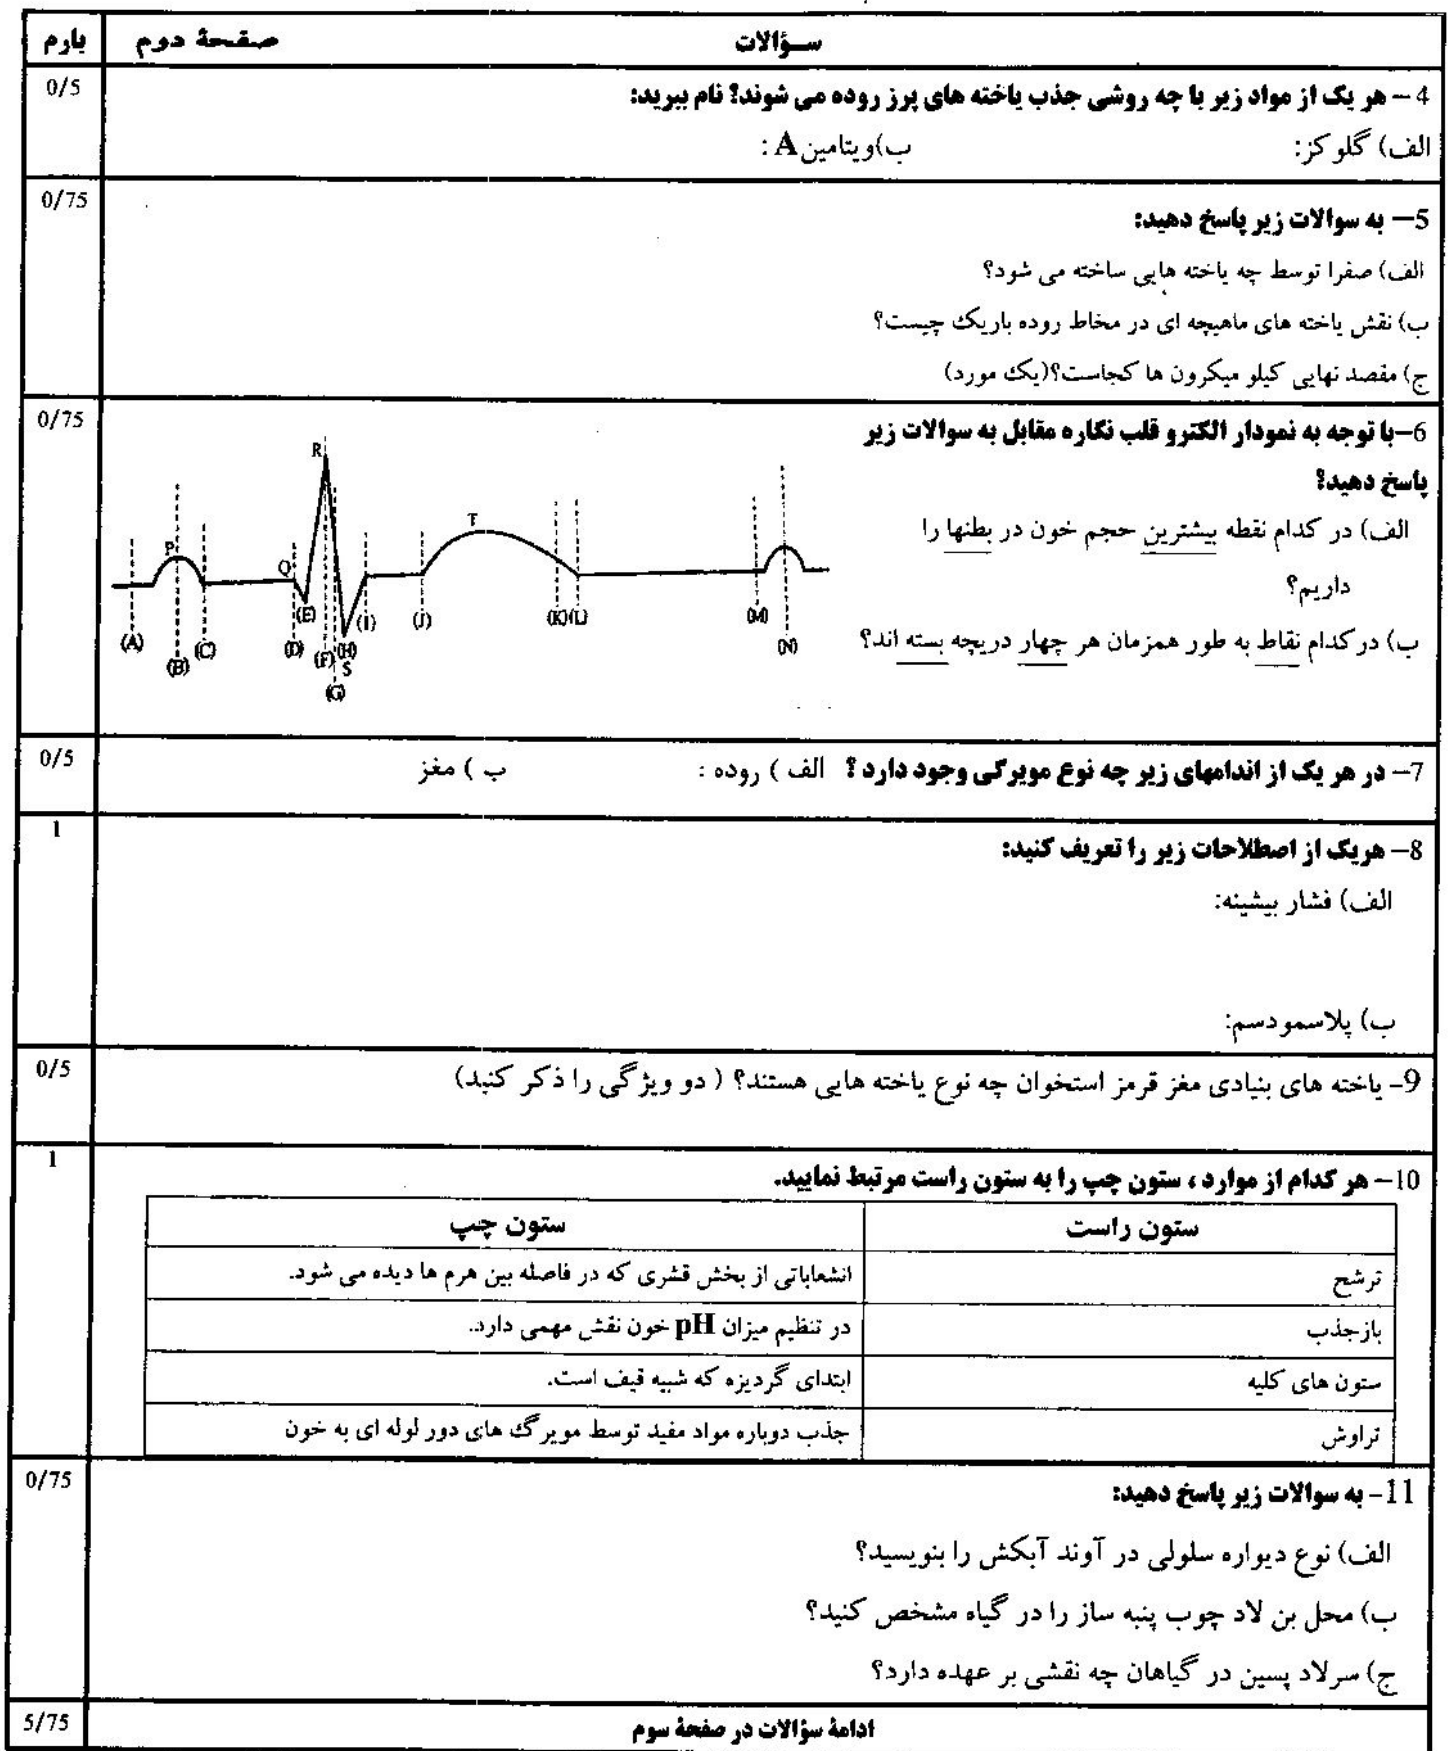 سؤالات
صفحهٔ دوم
بارم
4 – هر یک از مواد زیر با چه روشی جذب یاخته های پرز روده می شوند؟ نام ببرید:
0/5
الف) گلوکز: ب)ویتامین A :
5– به سوالات زیر پاسخ دهید:
0/75
الف) صفرا توسط چه یاخته هایی ساخته می شود؟
ب) نقش یاخته های ماهیچه ای در مخاط روده باریک چیست؟
ج) مقصد نهایی کیلو میکرون ها کجاست؟(یک مورد)
6–با توجه به نمودار الکترو قلب نگاره مقابل به سوالات زیر
پاسخ دهید؟
0/75
الف) در کدام نقطه بیشترین حجم خون در بطنها را
داریم؟
ب) درکدام نقاط به طور همزمان هر چهار دریچه بسته اند؟
R
P
Q
T
S
(A)
(B)
(C)
(D)
(E)
(F)
(G)
(H)
(I)
(J)
(K)
(L)
(M)
(N)
7– در هر یک از اندامهای زیر چه نوع مویرگی وجود دارد ؟ الف ) روده : ب ) مغز
0/5
8– هریک از اصطلاحات زیر را تعریف کنید:
1
الف) فشار بیشینه:
ب) پلاسمودسم:
9- یاخته های بنیادی مغز قرمز استخوان چه نوع یاخته هایی هستند؟ ( دو ویژگی را ذکر کنید)
0/5
10– هر کدام از موارد ، ستون چپ را به ستون راست مرتبط نمایید.
1
ستون راست
ستون چپ
ترشح
انشعاباتی از بخش قشری که در فاصله بین هرم ها دیده می شود.
بازجذب
در تنظیم میزان pH خون نقش مهمی دارد.
ستون های کلیه
ابتدای گردیزه که شبیه قیف است.
تراوش
جذب دوباره مواد مفید توسط مویرگ های دور لوله ای به خون
11- به سوالات زیر پاسخ دهید:
0/75
الف) نوع دیواره سلولی در آوند آبکش را بنویسید؟
ب) محل بن لاد چوب پنبه ساز را در گیاه مشخص کنید؟
ج) سرلاد پسین در گیاهان چه نقشی بر عهده دارد؟
ادامهٔ سؤالات در صفحهٔ سوم
5/75